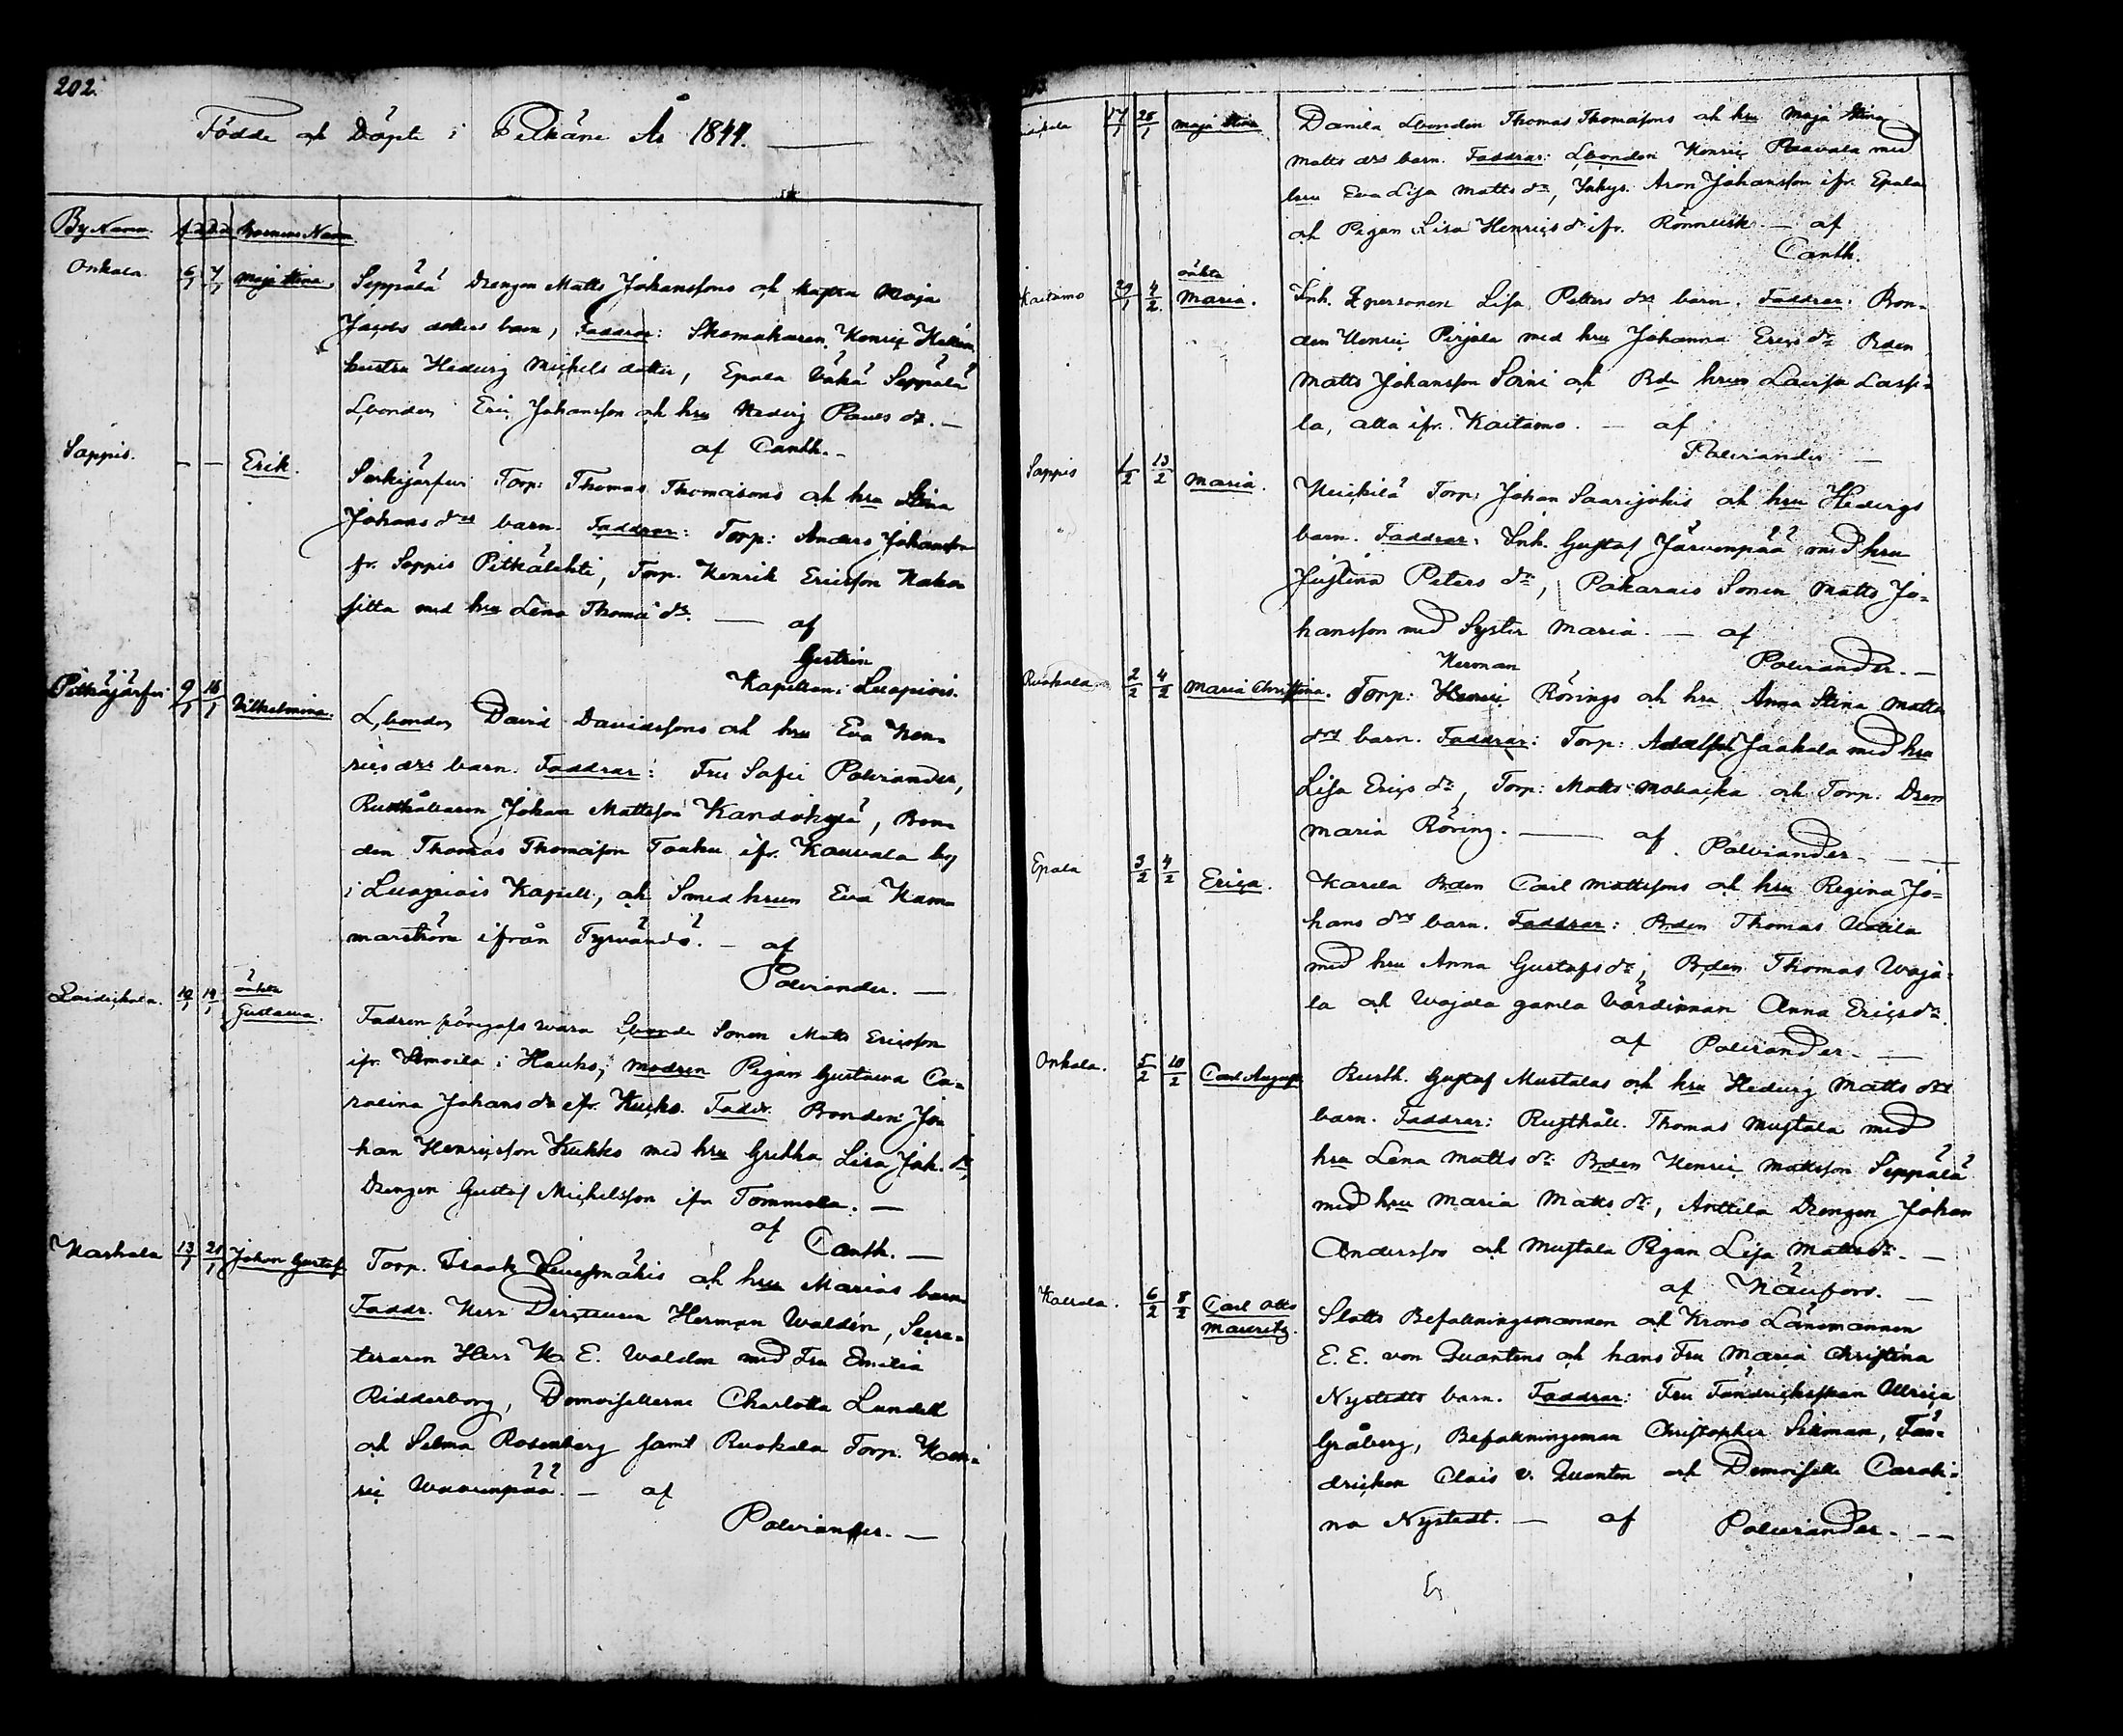 202.
Födde och Döpte i Pelkäne År 1844.
By Namn. Barnens Namn
Onkala 6/1 7/1 Maja Stina. Seppälä Drengen Matts Johanssons och hustru Maja
Jacobs dotters barn, Faddrar: Skomakaren Henric
hustru Hedvig Michels dotter, Epala Seppälä
Lbonden Eric Johansson och hru Hedvig Pauls dr. —
af Canth. —
Sappis. — — Erik. Särkijärfvi Torp: Thomas Thomassons och hru Stina
Johans drs barn. Faddrar: Torp: Anders Johansson
fr. Sappis Pitkälahti, Torp. Henrik Ericsson
sitta med hru Lena Thomæ dr. — af
Gestrin
Kapellan i Luopiois.
Pitkäjärfvi 9/1 16/1 Vilhelmina. Lbonden David Davidssons och hru Eva Hen-
rics drs barn. Faddrar: Fru Sofie Polviander,
Rusthållaren Johan Mattsson Kandokylä, Bon-
den Thomas Thomasson Tauhu ifr. Kauvala by
i Luopiois Kapell, och Smed hrun Eva Ham-
marström ifrån Tyrvändö. — af
Polviander. —
Laidickala. 12/1 14/1 oäkta
Gustava. Fadren vara Lbonde Sonen Matts Ericsson
ifr. Simoila i Hauho, modren Pigan Gustava Ca-
rolina Johans dr ifr. Kucko. Faddr. Bonden Jo-
han Henricsson Kukko med hru Gretha Lisa Joh. dr,
Drengen Gustaf Michelsson ifr Tommola. —
af Canth. —
Harhala 13/1 21/1 Johan Gustaf Torp. Isaak och hru Marias barn
Faddr. Herr Directeuren Herman Waldén, Secre-
teraren Herr H. E. Walden med Fru Emilia
Ridderborg, Demoisellerne Charlotta Lundell
och Selma Rosenberg samt Ruokola Torp. Hen-
ric Wuorenpää. — af
Polviander. —
17/1 28/1 Maja Stina Danila Lbonden Thomas Thomassons och hru Maja Stina
Matts drs barn. Faddrar: Lbonden Henric Paavala med
hru Eva Lisa Matts dr, Inhys. Aron Johansson ifr. Epala
och Pigan Lisa Henrics dr ifr. Rönnvik — af
Canth.
Kaitamo 29/1 4/2 oäkta
Maria. Inh. Qpersonen Lisa Petters drs barn. Faddrar: Bon-
den Henric Pirjola med hru Johanna Erics dr Bden
Matts Johansson Soini och Bde hrun Lovisa Lassi-
la, alla ifr. Kaitamo. — af
Polviander —
Sappis 1/2 13/2 Maria. Heickilä Torp: Johan Saarijokis och hru Hedvigs
barn. Faddrar: Inh. Gustaf Järvenpää med hru
Justina Peters dr, Pakarais Sonen Matts Jo-
hansson med Syster Maria. — af
Polviander. —
Ruokola 2/2 4/2 Maria Christina. Herman
Torp: Henric Rörings och hru Anna Stina Matts
drs barn. Faddrar: Torp: Adolph Jaakola med hru
Lisa Erics dr, Torp: Matts och Torp. Dren
Maria Röring. — af Polviander. —
Epala 3/2 4/2 Erica. Karela Bden Carl Mattssons och hru Regina Jo-
hans drs barn. Faddrar: Bden Thomas Uotila
med hru Anna Gustafs dr, Bden Thomas Waja-
la och Wajala gamla Värdinnan Anna Erics dr.
af Polviander. —
Onkala. 5/2 10/2 Carl August Rusth. Gustaf Mustalas och hru Hedvig Matts drs
barn. Faddrar: Rusthåll. Thomas Mustala med
hru Lena Matts dr Bden Henric Mattsson Seppälä
med hru Maria Matts dr, Anttila Drengen Johan
Andersson och Mustala Pigan Lisa Matts dr. —
af Näufors. —
6/2 8/2 Carl Otto
Mauritz. Slotts Befallningsmannen och Krono Länsmannen
E. E. von Quantens och hans Fru Maria Christina
Nystedts barn. Faddrar: Fru Fändrickskan Ulrica
Gråberg, Befallningsman Christopher Silman, Fän-
dricken Clais v. Quanten och Demoiselle Caroli-
na Nystedt. — af Polviander. —